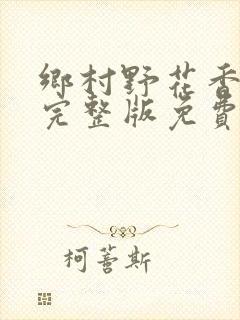 鄉村野花香
完整版免費
柯蒼斯